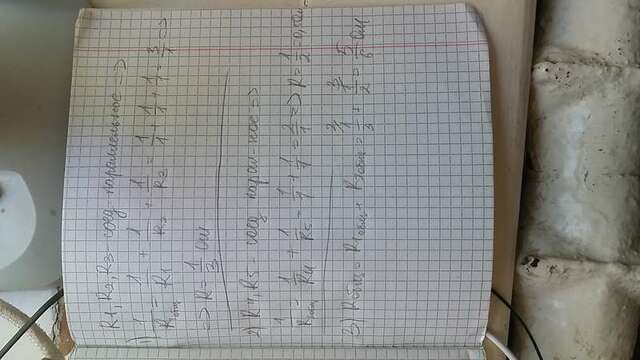 R1, R2, R3 - соед. параллельное =>
1) 1/R1общ = 1/R1 + 1/R2 + 1/R3 = 1/1 + 1/1 + 1/1 = 3/1 =>
=> R = 1/3 Ом
2) R4, R5 - соед парал-ное =>
1/R2общ = 1/R4 + 1/R5 = 1/1 + 1/1 = 2/1 => R = 1/2 = 0,5 Ом
3) Rобщ = R1общ + R2общ = 1/3 + 1/2 = 5/6 Ом